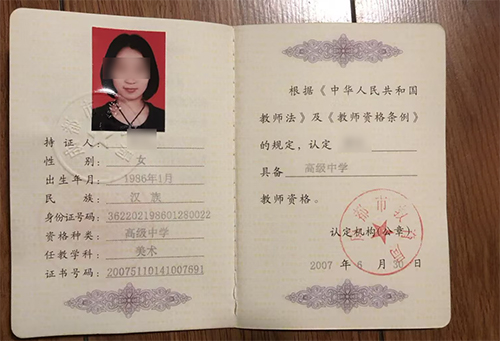 持证人:
性别: 女
出生年月: 1986年1月
民族: 汉族
身份证号码: 362202198601280022
资格种类: 高级中学
任教学科: 美术
证书号码: 20075110141007691
根据《中华人民共和国
教师法》及《教师资格条例》
的规定,认定
具备 高级中学
教师资格。
认定机构(公章)
2007 年 6 月 30 日